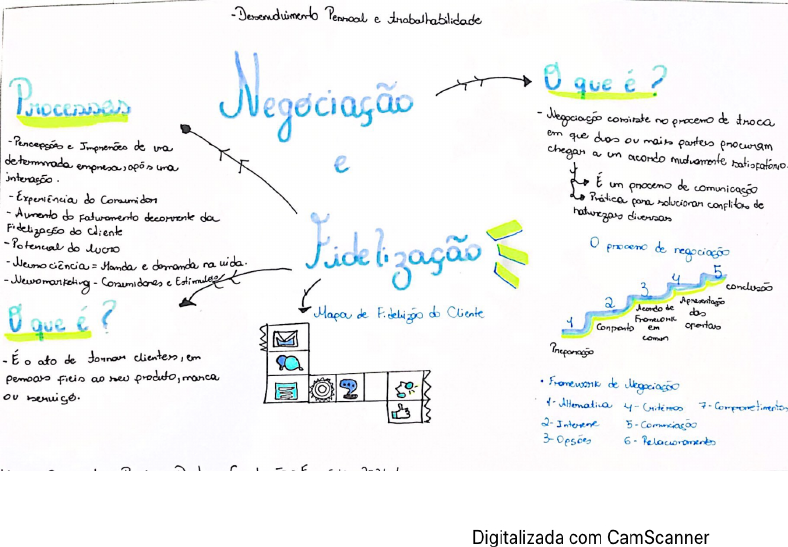 - Desenvolvimento Pessoal e trabalhabilidade
Negociação
e
Fidelização
Processos
- Percepções e Impressões de uma
determinada empresa, após uma
interação.
- Experiência do Consumidor
- Aumento do faturamento decorrente da
Fidelização do Cliente
- Potencial do lucro
- Neurociência = Manda e demanda na vida.
- Neuromarketing - Consumidores e Estímulos
O que é?
- É o ato de tornar clientes, em
pessoas fiéis ao seu produto, marca
ou serviço.
Mapa de Fidelização do Cliente
O que é?
- Negociação consiste no processo de troca
em que duas ou mais partes procuram
chegar a um acordo mutuamente satisfatório.
É um processo de comunicação
Prática para solucionar conflitos de
naturezas diversas
O processo de negociação
1 2 3 4 5
Preparação
Conjunto
Acordo de
Framework
em
comum
Apresentação
das
ofertas
conclusão
• Framework de Negociação
1- Alternativa 4- Critérios 7- Comprometimentos
2- Interesse 5- Comunicação
3- Opções 6- Relacionamento
Digitalizada com CamScanner